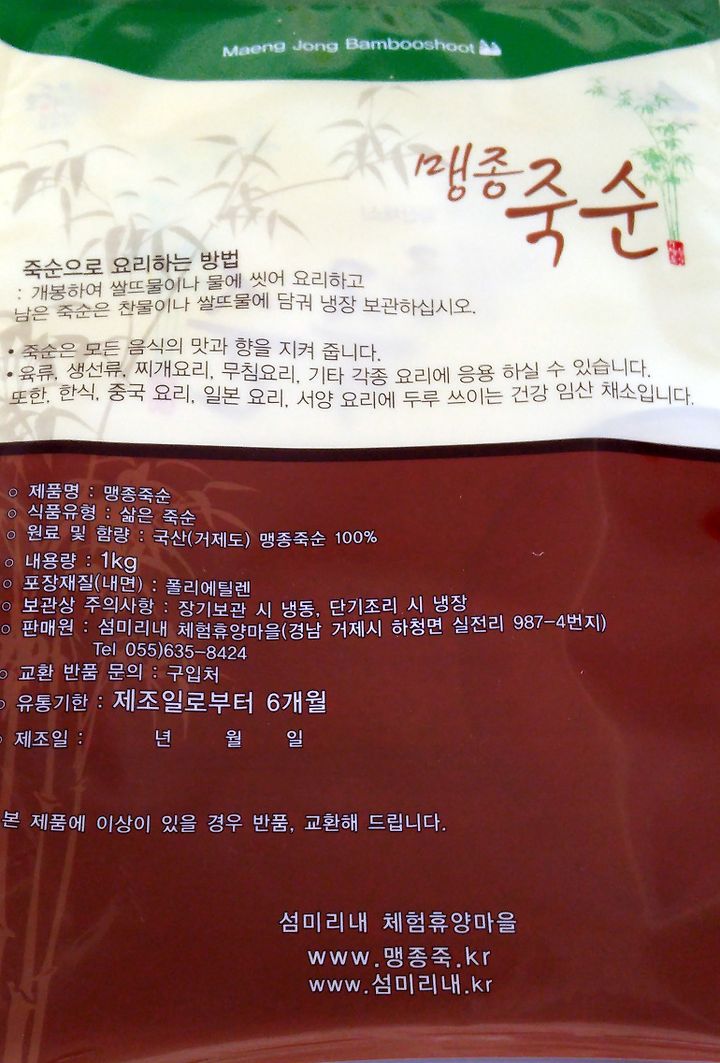 Maeng Jong Bambooshoot
맹종죽순
죽순으로 요리하는 방법
: 개봉하여 쌀뜨물이나 물에 씻어 요리하고
남은 죽순은 찬물이나 쌀뜨물에 담궈 냉장 보관하십시오.
• 죽순은 모든 음식의 맛과 향을 지켜 줍니다.
• 육류, 생선류, 찌개요리, 무침요리, 기타 각종 요리에 응용 하실 수 있습니다.
또한, 한식, 중국 요리, 일본 요리, 서양 요리에 두루 쓰이는 건강 임산 채소입니다.
○ 제품명 : 맹종죽순
○ 식품유형 : 삶은 죽순
○ 원료 및 함량 : 국산(거제도) 맹종죽순 100%
○ 내용량 : 1kg
○ 포장재질(내면) : 폴리에틸렌
○ 보관상 주의사항 : 장기보관 시 냉동, 단기조리 시 냉장
○ 판매원 : 섬미리내 체험휴양마을(경남 거제시 하청면 실전리 987-4번지)
Tel 055)635-8424
○ 교환 반품 문의 : 구입처
○ 유통기한 : 제조일로부터 6개월
○ 제조일 : 년 월 일
본 제품에 이상이 있을 경우 반품, 교환해 드립니다.
섬미리내 체험휴양마을
www.맹종죽.kr
www.섬미리내.kr